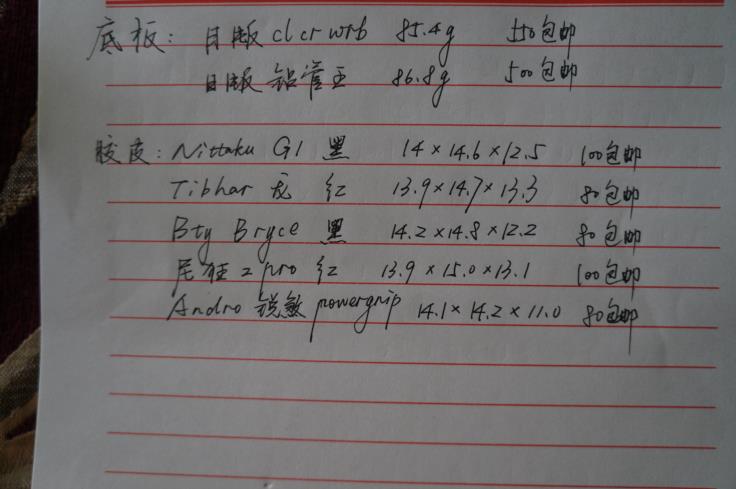 底板: 日版 cl cr wrb 85.4g 550包邮
日版 铝管王 86.8g 500包邮
胶皮: Nittaku G1 黑 14×14.6×12.5 100包邮
Tibhar 龙 红 13.9×14.7×13.3 80包邮
Bty Bryce 黑 14.2×14.8×12.2 80包邮
尼狂2pro 红 13.9×15.0×13.1 100包邮
Andro 锐敏 powergrip 14.1×14.2×11.0 80包邮